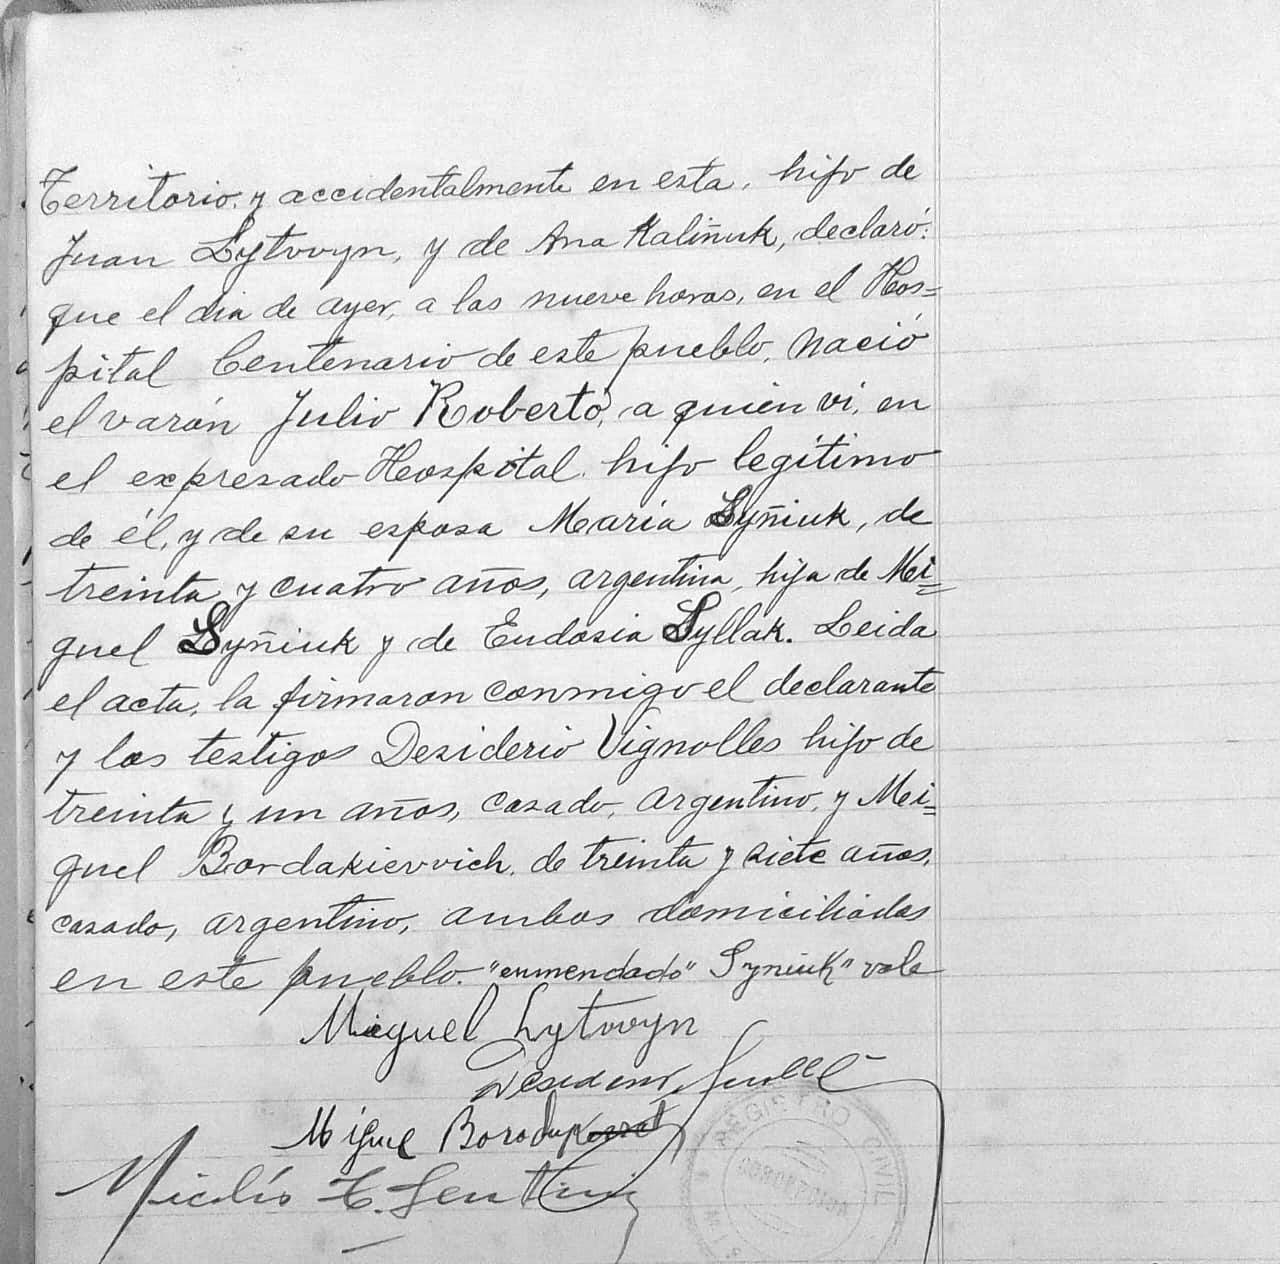 Territorio, y accidentalmente en esta, hijo de
Juan Lytwyn, y de Ana Kaliñuk, declaró:
que el dia de ayer, a las nueve horas, en el Hos=
pital Centenario de este pueblo, nació
el varón Julio Roberto, a quien vi, en
el expresado Hospital, hijo legítimo
de él, y de su esposa Maria Syñiuk, de
treinta y cuatro años, argentina, hija de Mi=
guel Syñiuk y de Eudosia Syllak. Leida
el acta, la firmaron conmigo el declarante
y los testigos Desiderio Vignolles hijo de
treinta y un años, casado, argentino, y Mi=
guel Bordakievvich, de treinta y siete años,
casado, argentino, ambos domiciliados
en este pueblo. "enmendado" Syniuk" vale
Miguel Lytwyn
Miguel
REGISTRO CIVIL